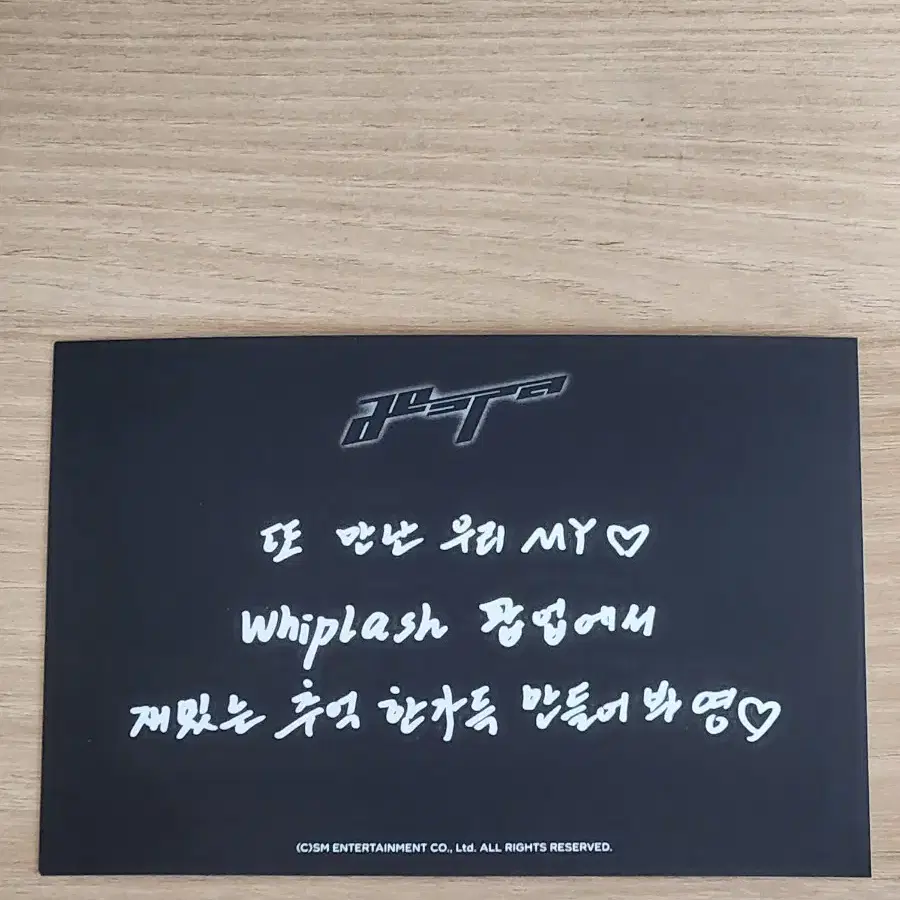 aespa
또 만난 우리 MY♡
Whiplash 팝업에서
재밌는 추억 한가득 만들어 봐 영♡
(C)SM ENTERTAINMENT CO., Ltd. ALL RIGHTS RESERVED.